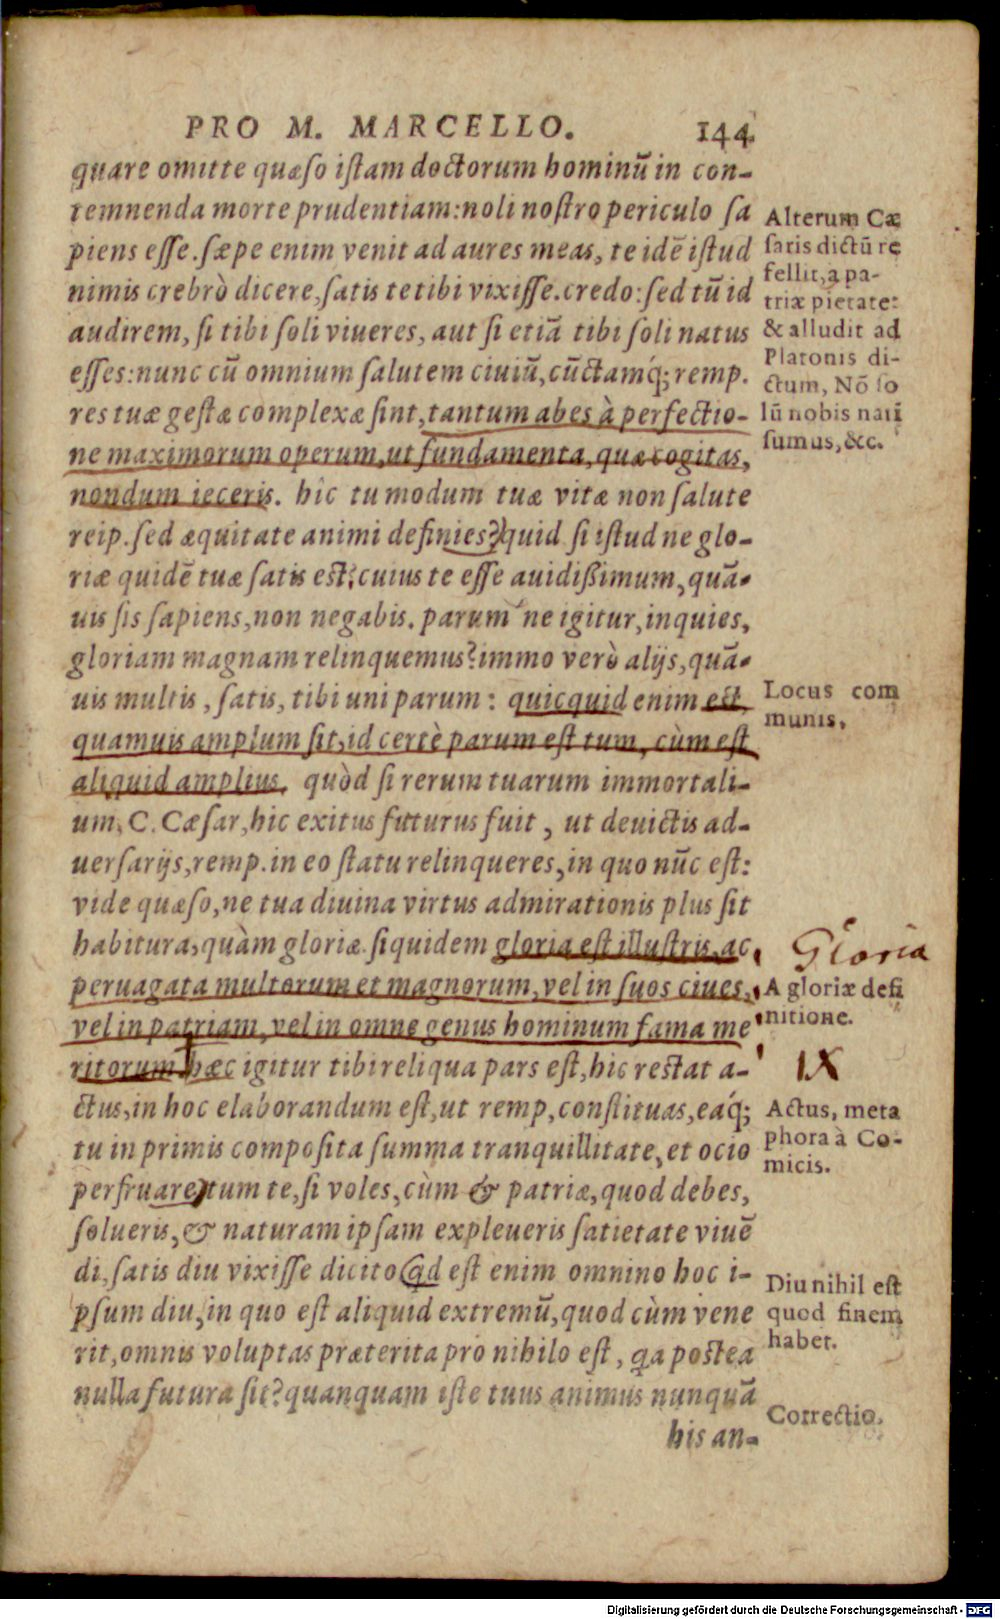 PRO M. MARCELLO. 144
quare omitte quæso iſtam doctorum hominū in con-
temnenda morte prudentiam: noli noſtro periculo ſa
piens eſſe. ſæpe enim venit ad aures meas, te idē iſtud
nimis crebrò dicere, ſatis te tibi vixiſſe. credo: ſed tū id
audirem, ſi tibi ſoli viueres, aut ſi etiā tibi ſoli natus
eſſes: nunc cū omnium ſalutem ciuiū, cūctamq́; remp.
res tuæ geſtæ complexæ ſint, tantum abes à perfectio-
ne maximorum operum, ut fundamenta, quæ cogitas,
nondum ieceris. hic tu modum tuæ vitæ non ſalute
reip. ſed æquitate animi definies? quid ſi iſtud ne glo-
riæ quidē tuæ ſatis est? cuius te eſſe auidißimum, quā-
uis ſis ſapiens, non negabis. parum ne igitur, inquies,
gloriam magnam relinquemus? immo verò alijs, quā-
uis multis, ſatis, tibi uni parum: quicquid enim est,
quamuis amplum ſit, id certè parum eſt tum, cùm eſt
aliquid amplius. quòd ſi rerum tuarum immortali-
um, C. Cæſar, hic exitus futurus fuit, ut deuictis ad-
uerſarijs, remp. in eo ſtatu relinqueres, in quo nūc eſt:
vide quæſo, ne tua diuina virtus admirationis plus ſit
habitura, quàm gloriæ. ſiquidem gloria eſt illuſtris, ac
peruagata multorum et magnorum, vel in ſuos ciues,
vel in patriam, vel in omne genus hominum fama me
ritorum. hæc igitur tibi reliqua pars eſt, hic restat a-
ctus, in hoc elaborandum eſt, ut remp, conſtituas, eaq́;
tu in primis compoſita ſumma tranquillitate, et ocio
perfruare, tum te, ſi voles, cùm & patriæ, quod debes,
ſolueris, & naturam ipſam expleueris ſatietate viuē
di, ſatis diu vixiſſe dicito. qd est enim omnino hoc i-
pſum diu, in quo eſt aliquid extremū, quod cùm vene
rit, omnis voluptas præterita pro nihilo eſt, qa postea
nulla futura ſit? quanquam iſte tuus animus nunquā
his an-
Alterum Cæ
ſaris dictū re
fellit, a pa-
triæ pietate:
& alludit ad
Platonis di-
ctum, Nō ſo
lū nobis nati
ſumus, &c.
Locus com
munis.
Gloria
A gloriæ defi
nitione.
IX
Actus, meta
phora à Co-
micis.
Diu nihil eſt
quod finem
habet.
Correctio.
Digitalisierung gefördert durch die Deutsche Forschungsgemeinschaft - DFG